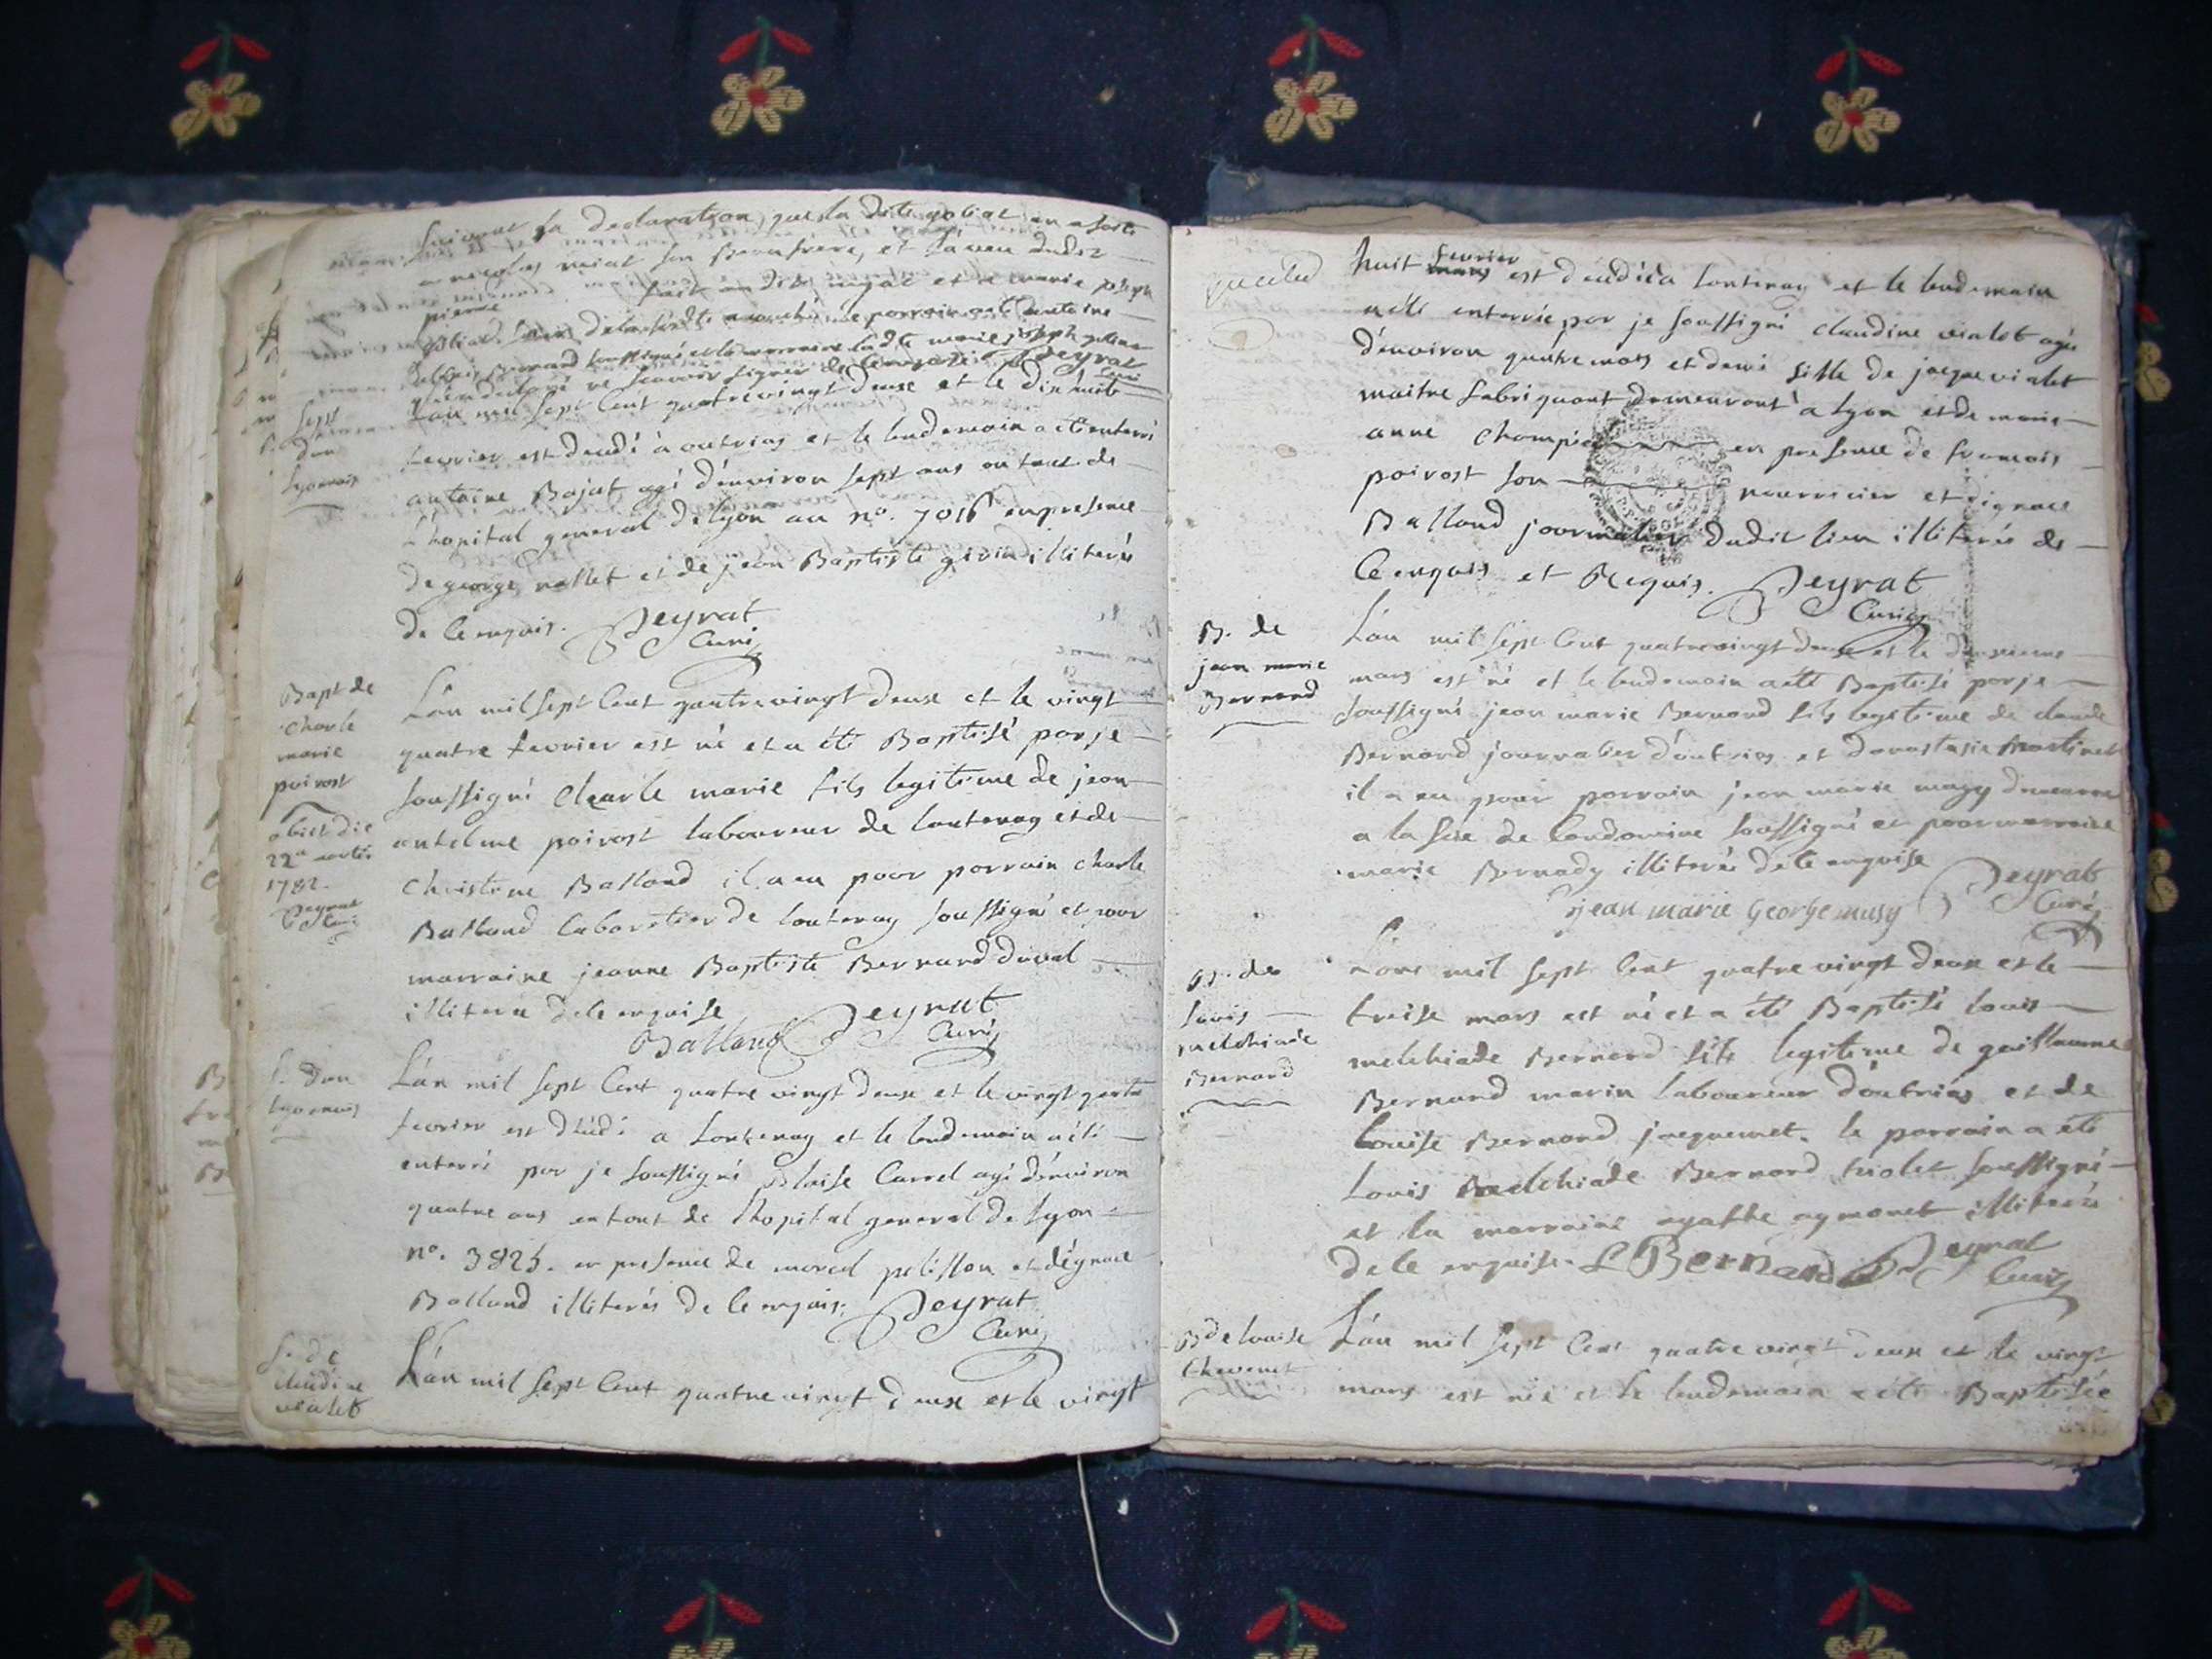 suivant la declaration que la dite goliat en a faite
a nicolas miat son Beaufrere, et l'aveu dudit
fait audit mgat et de marie joseph
pierre
goliat
Bernard soussigné et la marraine ladte marie joseph goliat
qui a declaré ne scavoir signer de ce enquise Peyrat
Curé
Sept
d'un
lyonnois
L'an mil sept cent quatrevingt deux et le dix huit
fevrier est decedé à outriaz et le lendemain a eté enterré
antoine Bajat agé d'environ sept ans enfant de
l'hopital general de lyon au no. 7016 en presence
de george vallet et de jean Baptiste givin illiterés
de ce enquis. Peyrat
Curé
Bapt de
Charle
marie
poirost
obiit die
22a
1782.
Peyrat
Curé
L'an mil sept cent quatrevingt deux et le vingt
quatre fevrier est né et a été Baptisé par je
soussigné Charle marie fils legitime de jean
antelme poirost laboureur de lantenay et de
Christine Balland il a eu pour parrain charle
Balland laboureur de lantenay soussigné et pour
marraine jeanne Baptiste Bernard duval
illiterée de ce enquise
Balland Peyrat
Curé
S. d'un
lyonnois
L'an mil sept cent quatre vingt deux et le vingt quatre
fevrier est decedé a lantenay et le lendemain a été
enterré par je soussigné Blaise Carrel agé d'environ
quatre ans enfant de l'hopital general de lyon
no. 3825. en presence de marcel pelisson et d'ignace
Balland illiterés de ce enquis. Peyrat
Curé
S. de
claudine
vialet
L'an mil sept cent quatre vingt deux et le vingt
huit mars fevrier est decedée a lantenay et le lendemain
a été enterrée par je soussigné claudine vialet agée
d'environ quatre mois et demi fille de jacque vialet
maitre fabriquant demeurant a lyon et de marie
anne Champié en presence de francois
poirost son nourricier et ignace
Balland journalier dudit lieu illiterés de
ce enquis et Requis. Peyrat
Curé
B. de
jean marie
Bernard
L'an mil sept cent quatrevingt deux et le
mars est né et le lendemain a été Baptisé par je
soussigné jean marie Bernard fils legitime de claude
Bernard journalier d'outrias et d'anastasie martinet
il a eu pour parrain jean marie musy demeurant
a la scie de soussigné et pour marraine
marie Bernady illiterée de ce enquise
jean marie George musy Peyrat
Curé
B. de
louis
melchiade
Bernard
L'an mil sept cent quatre vingt deux et le
treise mars est né et a été Baptisé louis
melchiade Bernard fils legitime de guillaume
Bernard marin laboureur d'outrias et de
louise Bernard jacquemet. le parrain a été
Louis melchiade Bernard violet soussigné
et la marraine agathe aymonet illiterée
de ce enquise. L Bernard Peyrat
Curé
B de louise
Chevenet
L'an mil sept cent quatre vingt deux et le vingt
mars est née et le lendemain a été Baptisée